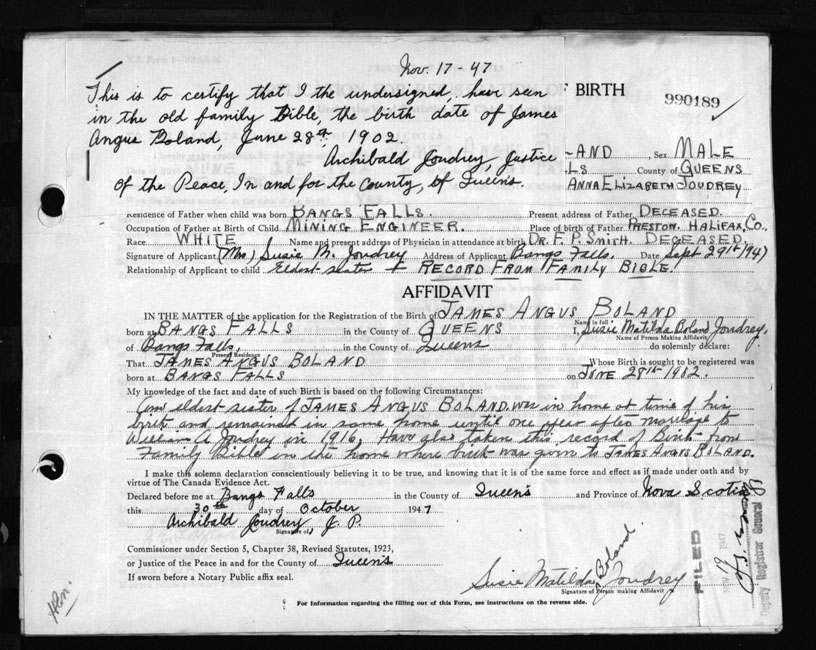 Nov. 17 - 47
This is to certify that I the undersigned have seen
in the old family Bible, the birth date of James
Angus Boland, June 28th, 1902.
Archibald Joudrey, Justice
of the Peace, In and for the County of Queen's.
F BIRTH
990189
AND, Sex MALE
LS County of QUEENS
ANNA ELIZABETH JOUDREY
Residence of Father when child was born BANGS FALLS. Present address of Father DECEASED.
Occupation of Father at Birth of Child MINING ENGINEER. Place of birth of Father PRESTON. HALIFAX, CO.,
Race WHITE Name and present address of Physician in attendance at birth DR. F. P. SMITH. DECEASED.
Signature of Applicant (Mrs) Susie M. Joudrey Address of Applicant Bangs Falls. Date Sept 29th 1947
Relationship of Applicant to child Eldest sister + RECORD FROM FAMILY BIBLE.
AFFIDAVIT
IN THE MATTER of the application for the Registration of the Birth of JAMES ANGUS BOLAND
Name in full
born at BANGS FALLS in the County of QUEENS I, Susie Matilda Boland Joudrey,
Name of Person Making Affidavit
of Bangs Falls, in the County of Queens do solemnly declare:
Present Residence
That JAMES ANGUS BOLAND Whose Birth is sought to be registered was
born at BANGS FALLS on JUNE 28th 1902.
My knowledge of the fact and date of such Birth is based on the following Circumstances:
Am eldest sister of JAMES ANGUS BOLAND. was in home at time of his
birth and remained in same home until one year after marriage to
William A Joudrey in 1916, Have also taken this record of birth from
Family Bible in the home where birth was given to JAMES ANGUS BOLAND.
I make this solemn declaration conscientiously believing it to be true, and knowing that it is of the same force and effect as if made under oath and by
virtue of The Canada Evidence Act.
Declared before me at Bangs Falls in the County of Queen's and Province of Nova Scotia
this 30th day of October 1947
Archibald Joudrey, J. P.
Signature of
Commissioner under Section 5, Chapter 38, Revised Statutes, 1923,
or Justice of the Peace in and for the County of Queen's
If sworn before a Notary Public affix seal.
Susie Matilda Boland Joudrey
Signature of Person making Affidavit
For Information regarding the filling out of this Form, see instructions on the reverse side.
FILED
NOV 19 1947
Deputy Registrar General